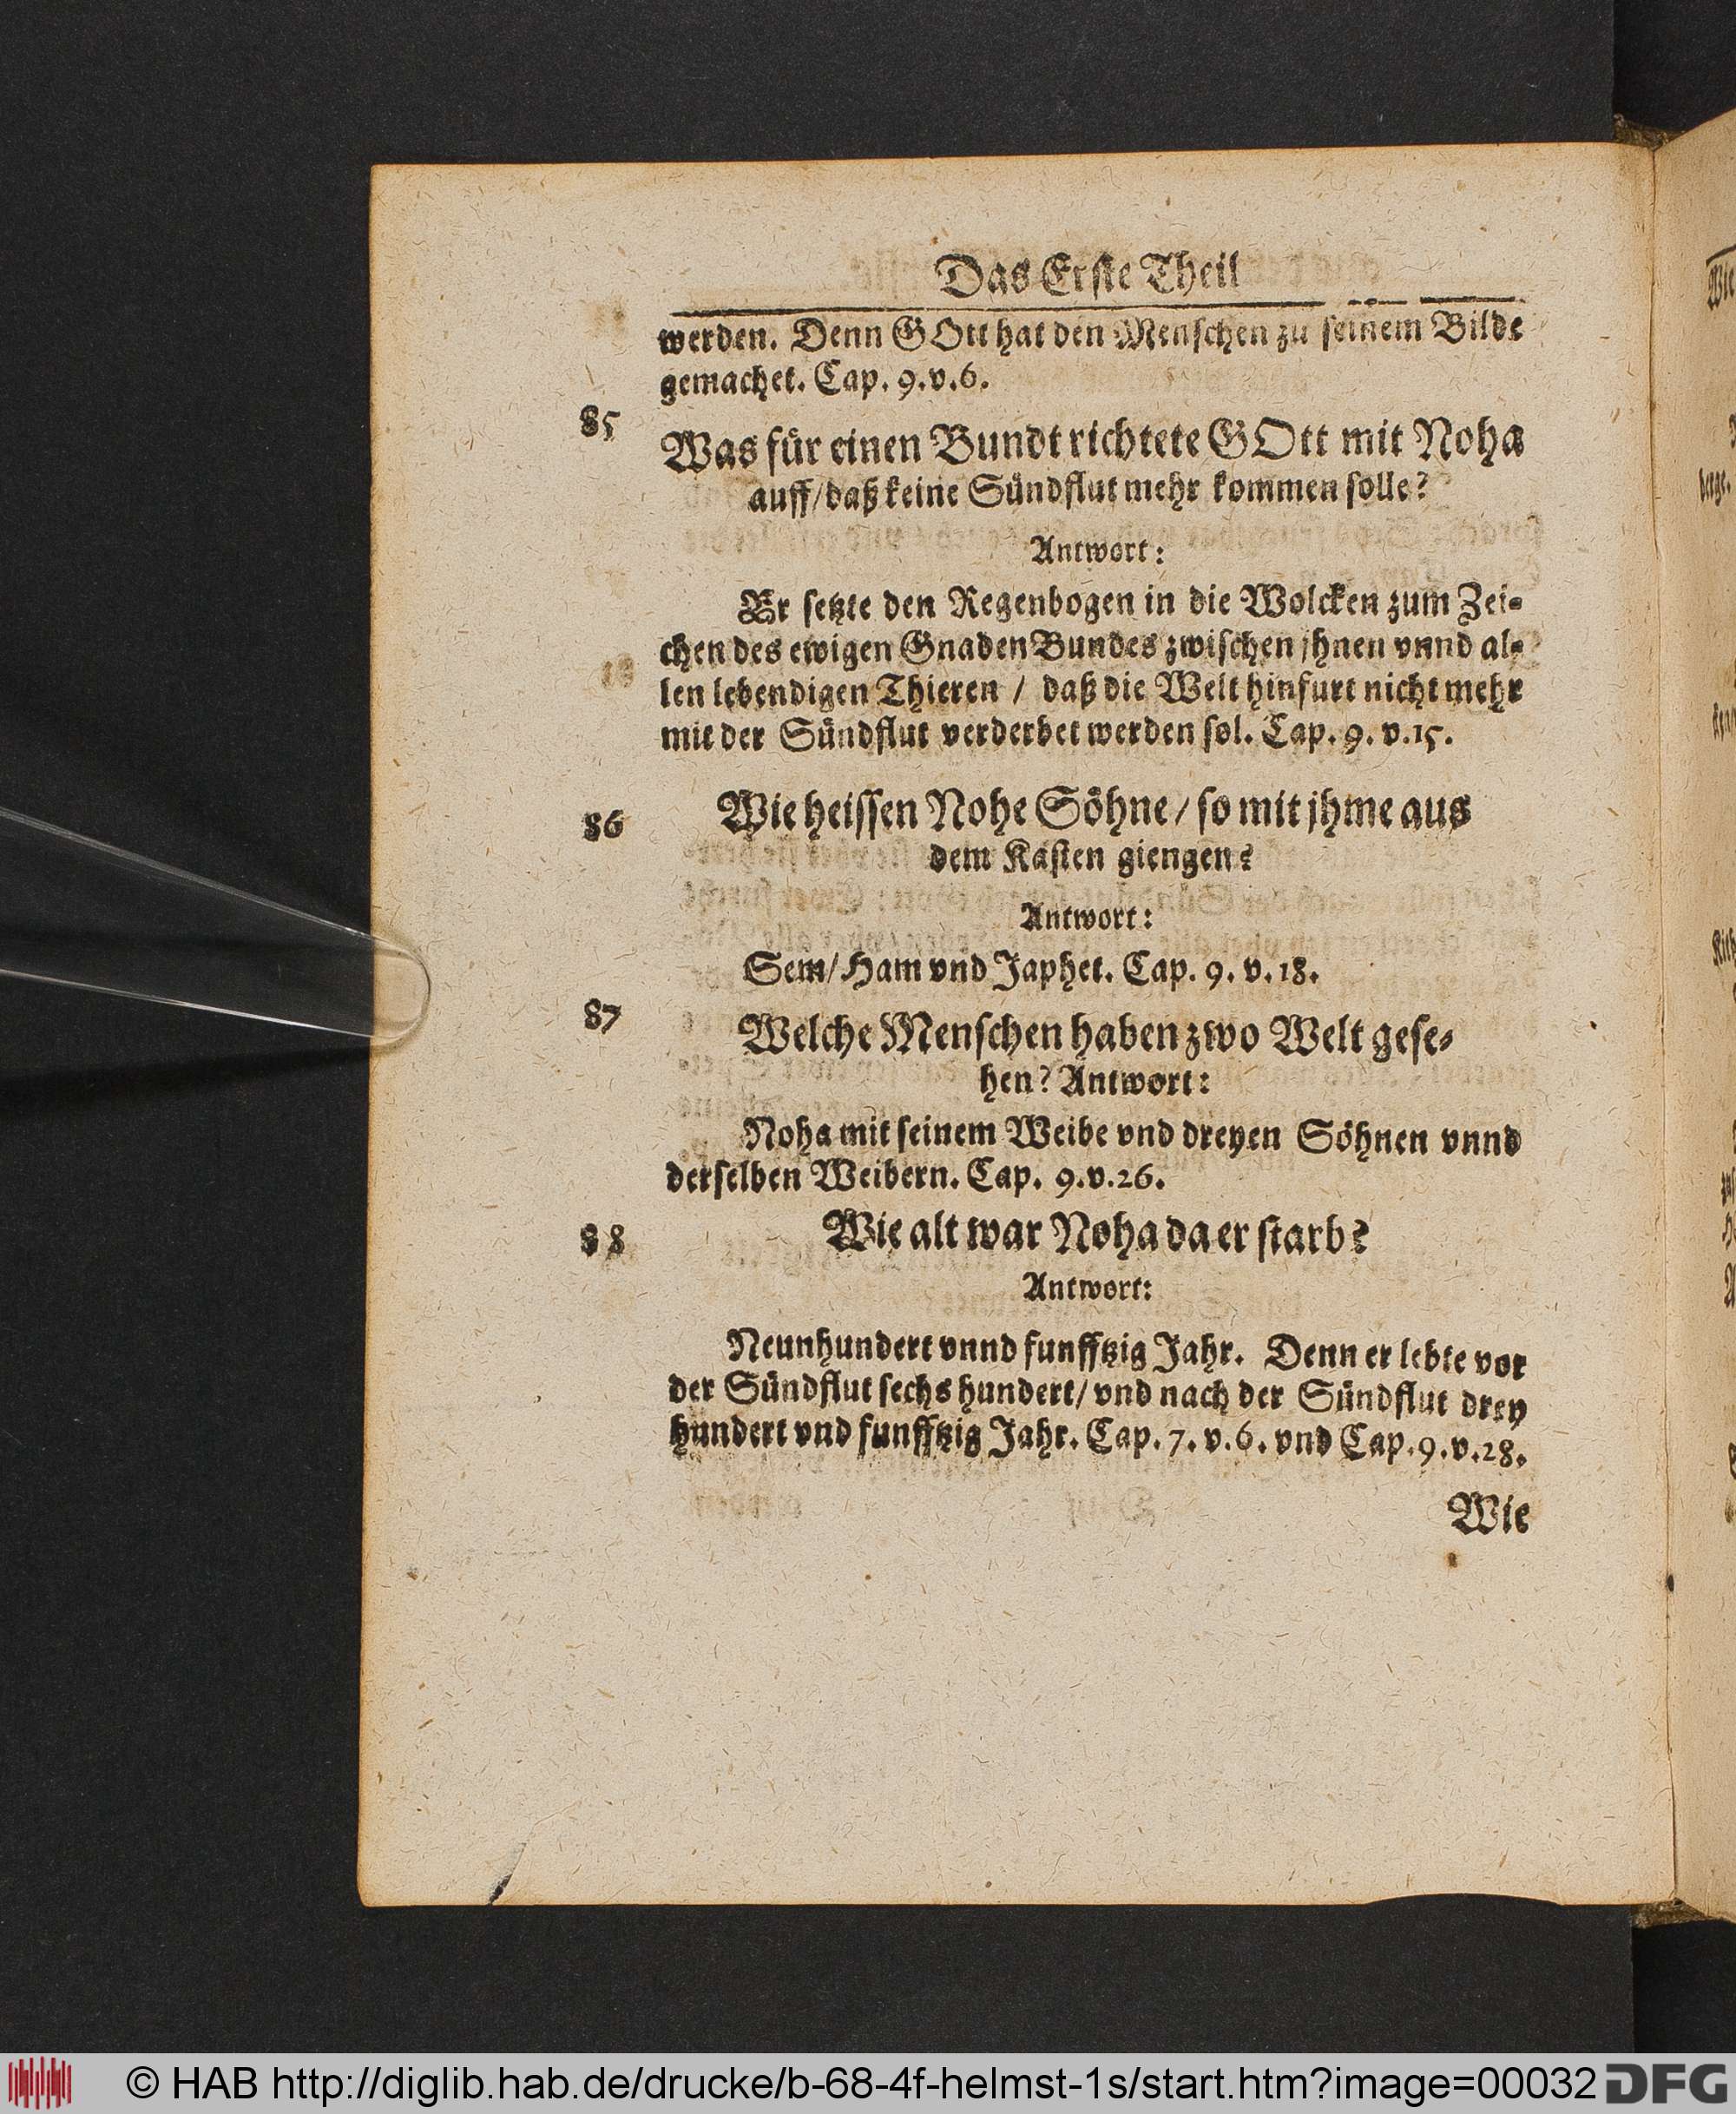 Das Erste Theil
werden. Denn GOtt hat den Menschen zu seinem Bilde
gemachet. Cap. 9. v. 6.
85
Was für einen Bundt richtete GOtt mit Noha
auff/ daß keine Sündflut mehr kommen solle?
Antwort:
Er setzte den Regenbogen in die Wolcken zum Zei-
chen des ewigen GnadenBundes zwischen jhnen vnnd al-
len lebendigen Thieren / daß die Welt hinfurt nicht mehr
mit der Sündflut verderbet werden sol. Cap. 9. v. 15.
86
Wie heissen Nohe Söhne/ so mit jhme aus
dem Kasten giengen?
Antwort:
Sem/ Ham vnd Japhet. Cap. 9. v. 18.
87
Welche Menschen haben zwo Welt gese-
hen? Antwort:
Noha mit seinem Weibe vnd dreyen Söhnen vnnd
derselben Weibern. Cap. 9. v. 26.
88
Wie alt war Noha da er starb?
Antwort:
Neunhundert vnnd funfftzig Jahr. Denn er lebte vor
der Sündflut sechs hundert/ vnd nach der Sündflut drey
hundert vnd funfftzig Jahr. Cap. 7. v. 6. vnd Cap. 9. v. 28.
Wie
© HAB http://diglib.hab.de/drucke/b-68-4f-helmst-1s/start.htm?image=00032
DFG